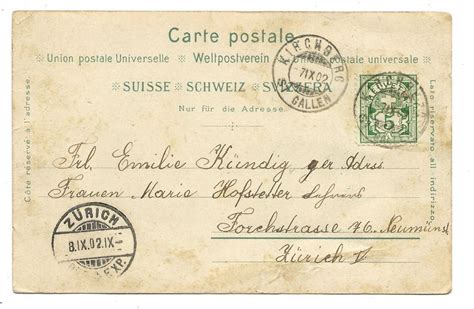 Carte postale
Union postale Universelle Weltpostverein postale universale
SUISSE SCHWEIZ SVIZZERA
Nur für die Adresse.
Côté réservé à l'adresse.
Lato riservato all indirizzo.
KIRCHBERG
7.IX.02
ST GALLEN
5
Frl. Emilie Kündig per Adrss.
Frauen Marie Hofstetter
Forchstrasse 76. Neumünst
Zürich V
ZÜRICH
8.IX.02.IX-
EXP.